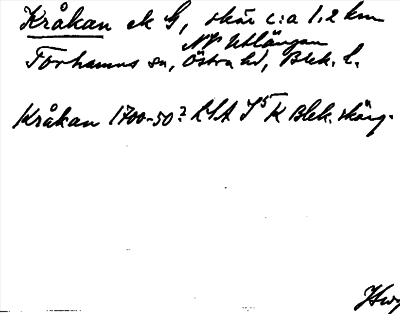 Kråkan ek G, skär c:a 1,2 km
NV Utlängan
Torhamns sn, Östra hd, Blek. l.
Kråkan 1700-50? LSA I⁵ K Blek. skärg.